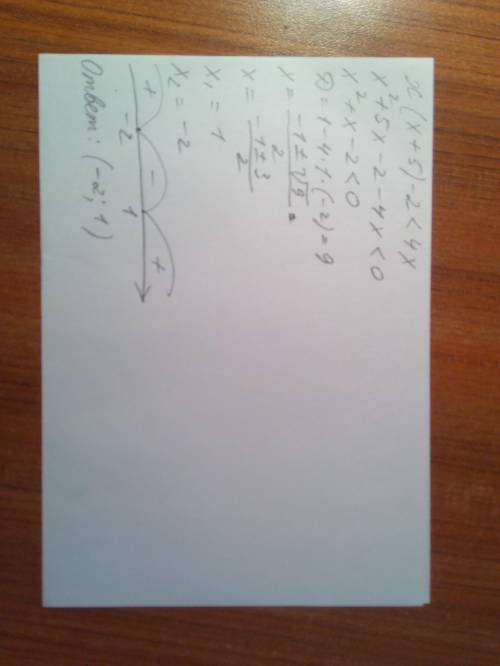 x(x+5)-2<4x
x²+5x-2-4x<0
x²+x-2<0
D=1-4·1·(-2)=9
x=\frac{-1±√9}{2}=
x=\frac{-1±3}{2}
x₁=1
x₂=-2
+ - +
-2 1
Ответ: (-2; 1)